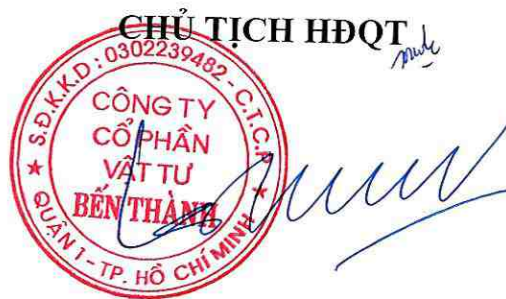 CHỦ TỊCH HĐQT
S.Đ.K.K.D: 0302239482 - C.T.C.P
CÔNG TY
CỔ PHẦN
VẬT TƯ
BẾN THÀNH
QUẬN 1 - TP. HỒ CHÍ MINH